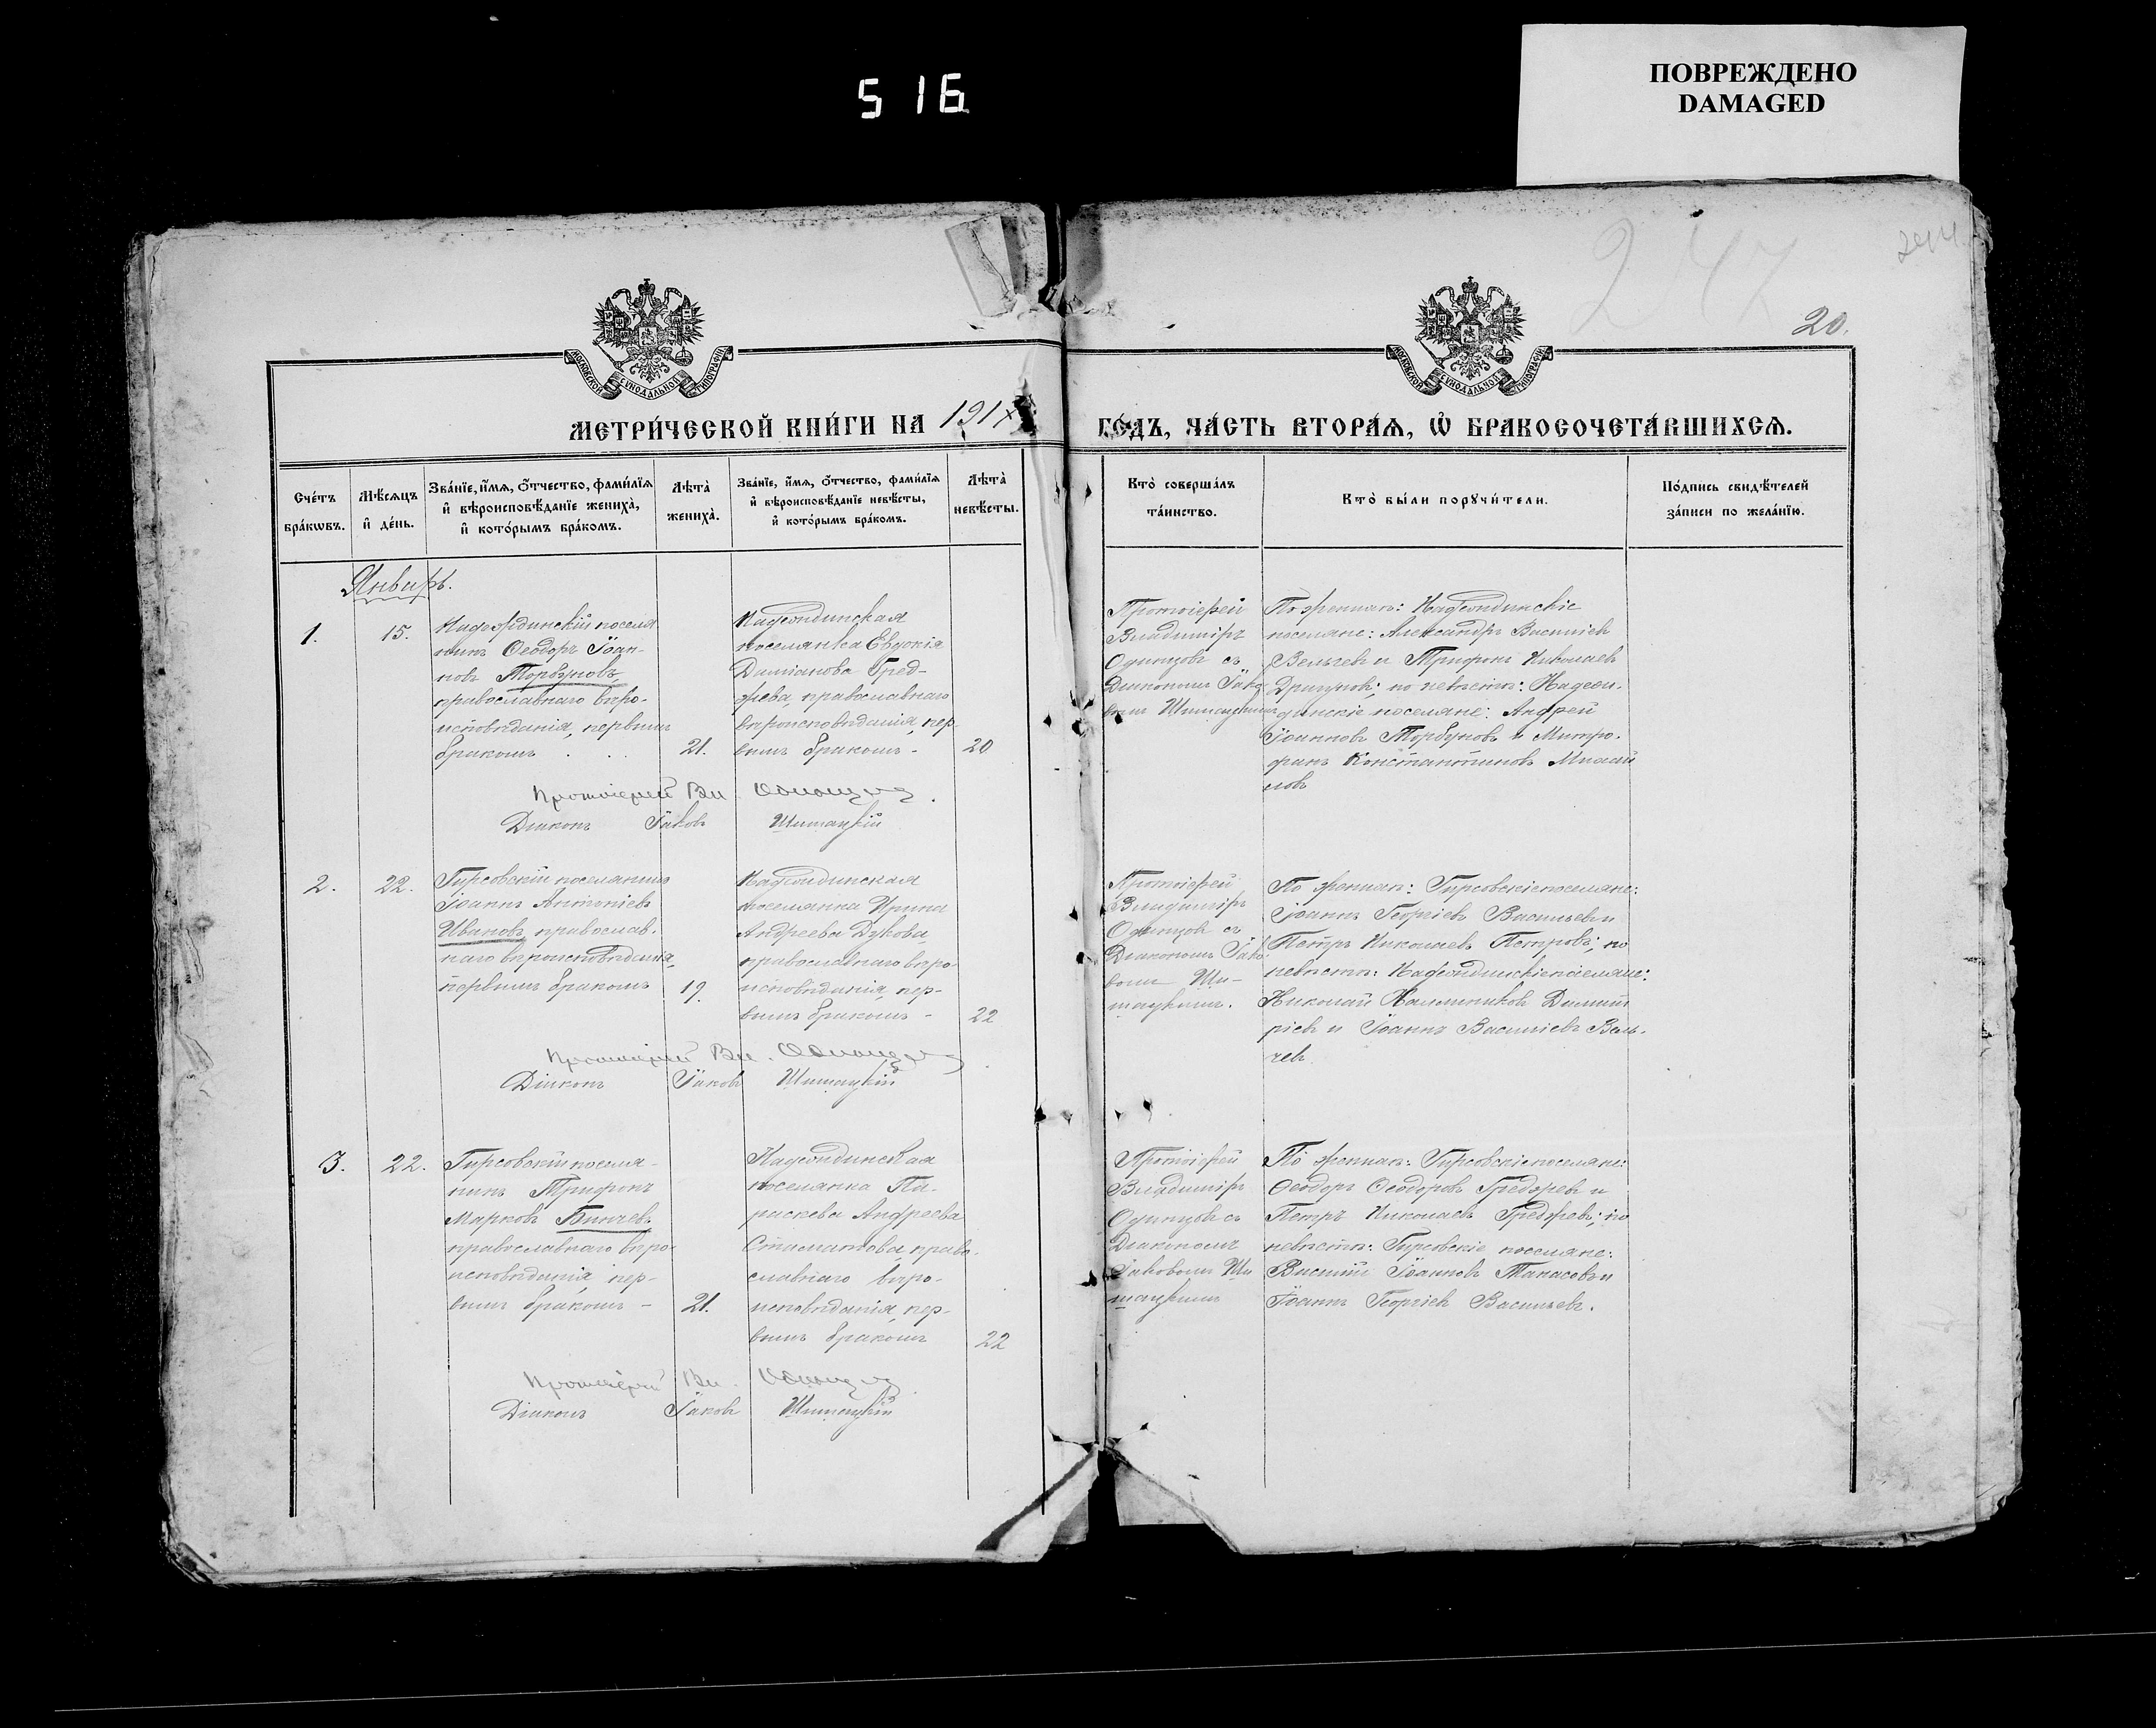 516
ПОВРЕЖДЕНО
DAMAGED
247
20.
МОСКОВСКОЙ СѴНОДАЛЬНОЙ ТИПОГРАФІИ
МОСКОВСКОЙ СѴНОДАЛЬНОЙ ТИПОГРАФІИ
МЕТРИ́ЧЕСКОЙ КНИ́ГИ НА 191
ГО́ДЪ, ЧА́СТЬ ВТОРА́Я, Ѽ БРАКОСОЧЕТА́ВШИХСЯ.
Сче́тъ
бра́кѡвъ.
Мѣ́сяцъ
и҆ де́нь.
Зва́нїе, и҆́мя, ѻ҆́тчество, фами́лїя
и҆ вѣроисповѣ́данїе жениха̀,
и҆ кото́рымъ бра́комъ.
Лѣта̀
жениха̀.
Зва́нїе, и҆́мя, ѻ҆́тчество, фами́лїя
и҆ вѣроисповѣ́данїе невѣ́сты,
и҆ кото́рымъ бра́комъ.
Лѣта̀
невѣ́сты.
Кто̀ соверша́лъ
та́инство.
Кто̀ бы́ли порꙋчи́тели.
По́дпись свидѣ́телей
за́писи по жела́нїю.
Январь.
1.
15.
Надеждинскій поселя
нинъ Ѳеодоръ Іоан-
новъ Торбуновъ,
православнаго вѣро-
исповѣданія, первымъ
бракомъ . . .
21.
Надеждинская
поселянка Евдокія
Даміанова Гред-
жева, православнаго
вѣроисповѣданія, пер-
вымъ бракомъ -
20
Протоіерей
Владиміръ
Одинцовъ съ
Діакономъ Іако
вомъ Шишацкимъ
По женихѣ: Надеждинскіе
поселяне: Александръ Василіевъ
Вельчевъ и Трифонъ Николаевъ
Драгуновъ; по невѣстѣ: Надеж-
динскіе поселяне: Андрей
Іоанновъ Торбуновъ и Митро-
фанъ Константиновъ Михай
ловъ
Протоіерей Вл. Одинцовъ.
Діаконъ Іаковъ Шишацкій
2.
22.
Гирсовскій поселянинъ
Іоаннъ Антоніевъ
Ивановъ, православ-
наго вѣроисповѣданія,
первымъ бракомъ
19.
Надеждинская
поселянка Ирина
Андреева Дукова,
православнаго вѣро
исповѣданія, пер-
вымъ бракомъ -
22
Протоіерей
Владиміръ
Одинцовъ съ
Діакономъ Іако
вомъ Ши-
шацкимъ.
По женихѣ: Гирсовскіе поселяне:
Іоаннъ Георгіевъ Васильевъ и
Петръ Николаевъ Петровъ; по
невѣстѣ: Надеждинскіе поселяне:
Николай Калмыковъ Димит
ріевъ и Іоаннъ Василіевъ Вель-
чевъ
Протоіерей Вл. Одинцовъ
Діаконъ Іаковъ Шишацкій
3.
22.
Гирсовскій поселя-
нинъ Трифонъ
Марковъ Бинчевъ,
православнаго вѣро-
исповѣданія, пер-
вымъ бракомъ -
21.
Надеждинская
поселянка Па-
раскева Андреева
Стаматова, право-
славнаго вѣро-
исповѣданія, пер-
вымъ бракомъ
22
Протоіерей
Владиміръ
Одинцовъ съ
Діакономъ
Іаковомъ Ши
шацкимъ
По женихѣ: Гирсовскіе поселяне:
Ѳеодоръ Ѳеодоровъ Греджевъ и
Петръ Николаевъ Греджевъ; по
невѣстѣ: Гирсовскіе поселяне:
Василій Іоанновъ Танасовъ и
Іоаннъ Георгіевъ Васильевъ.
Протоіерей Вл. Одинцовъ
Діаконъ Іаковъ Шишацкій